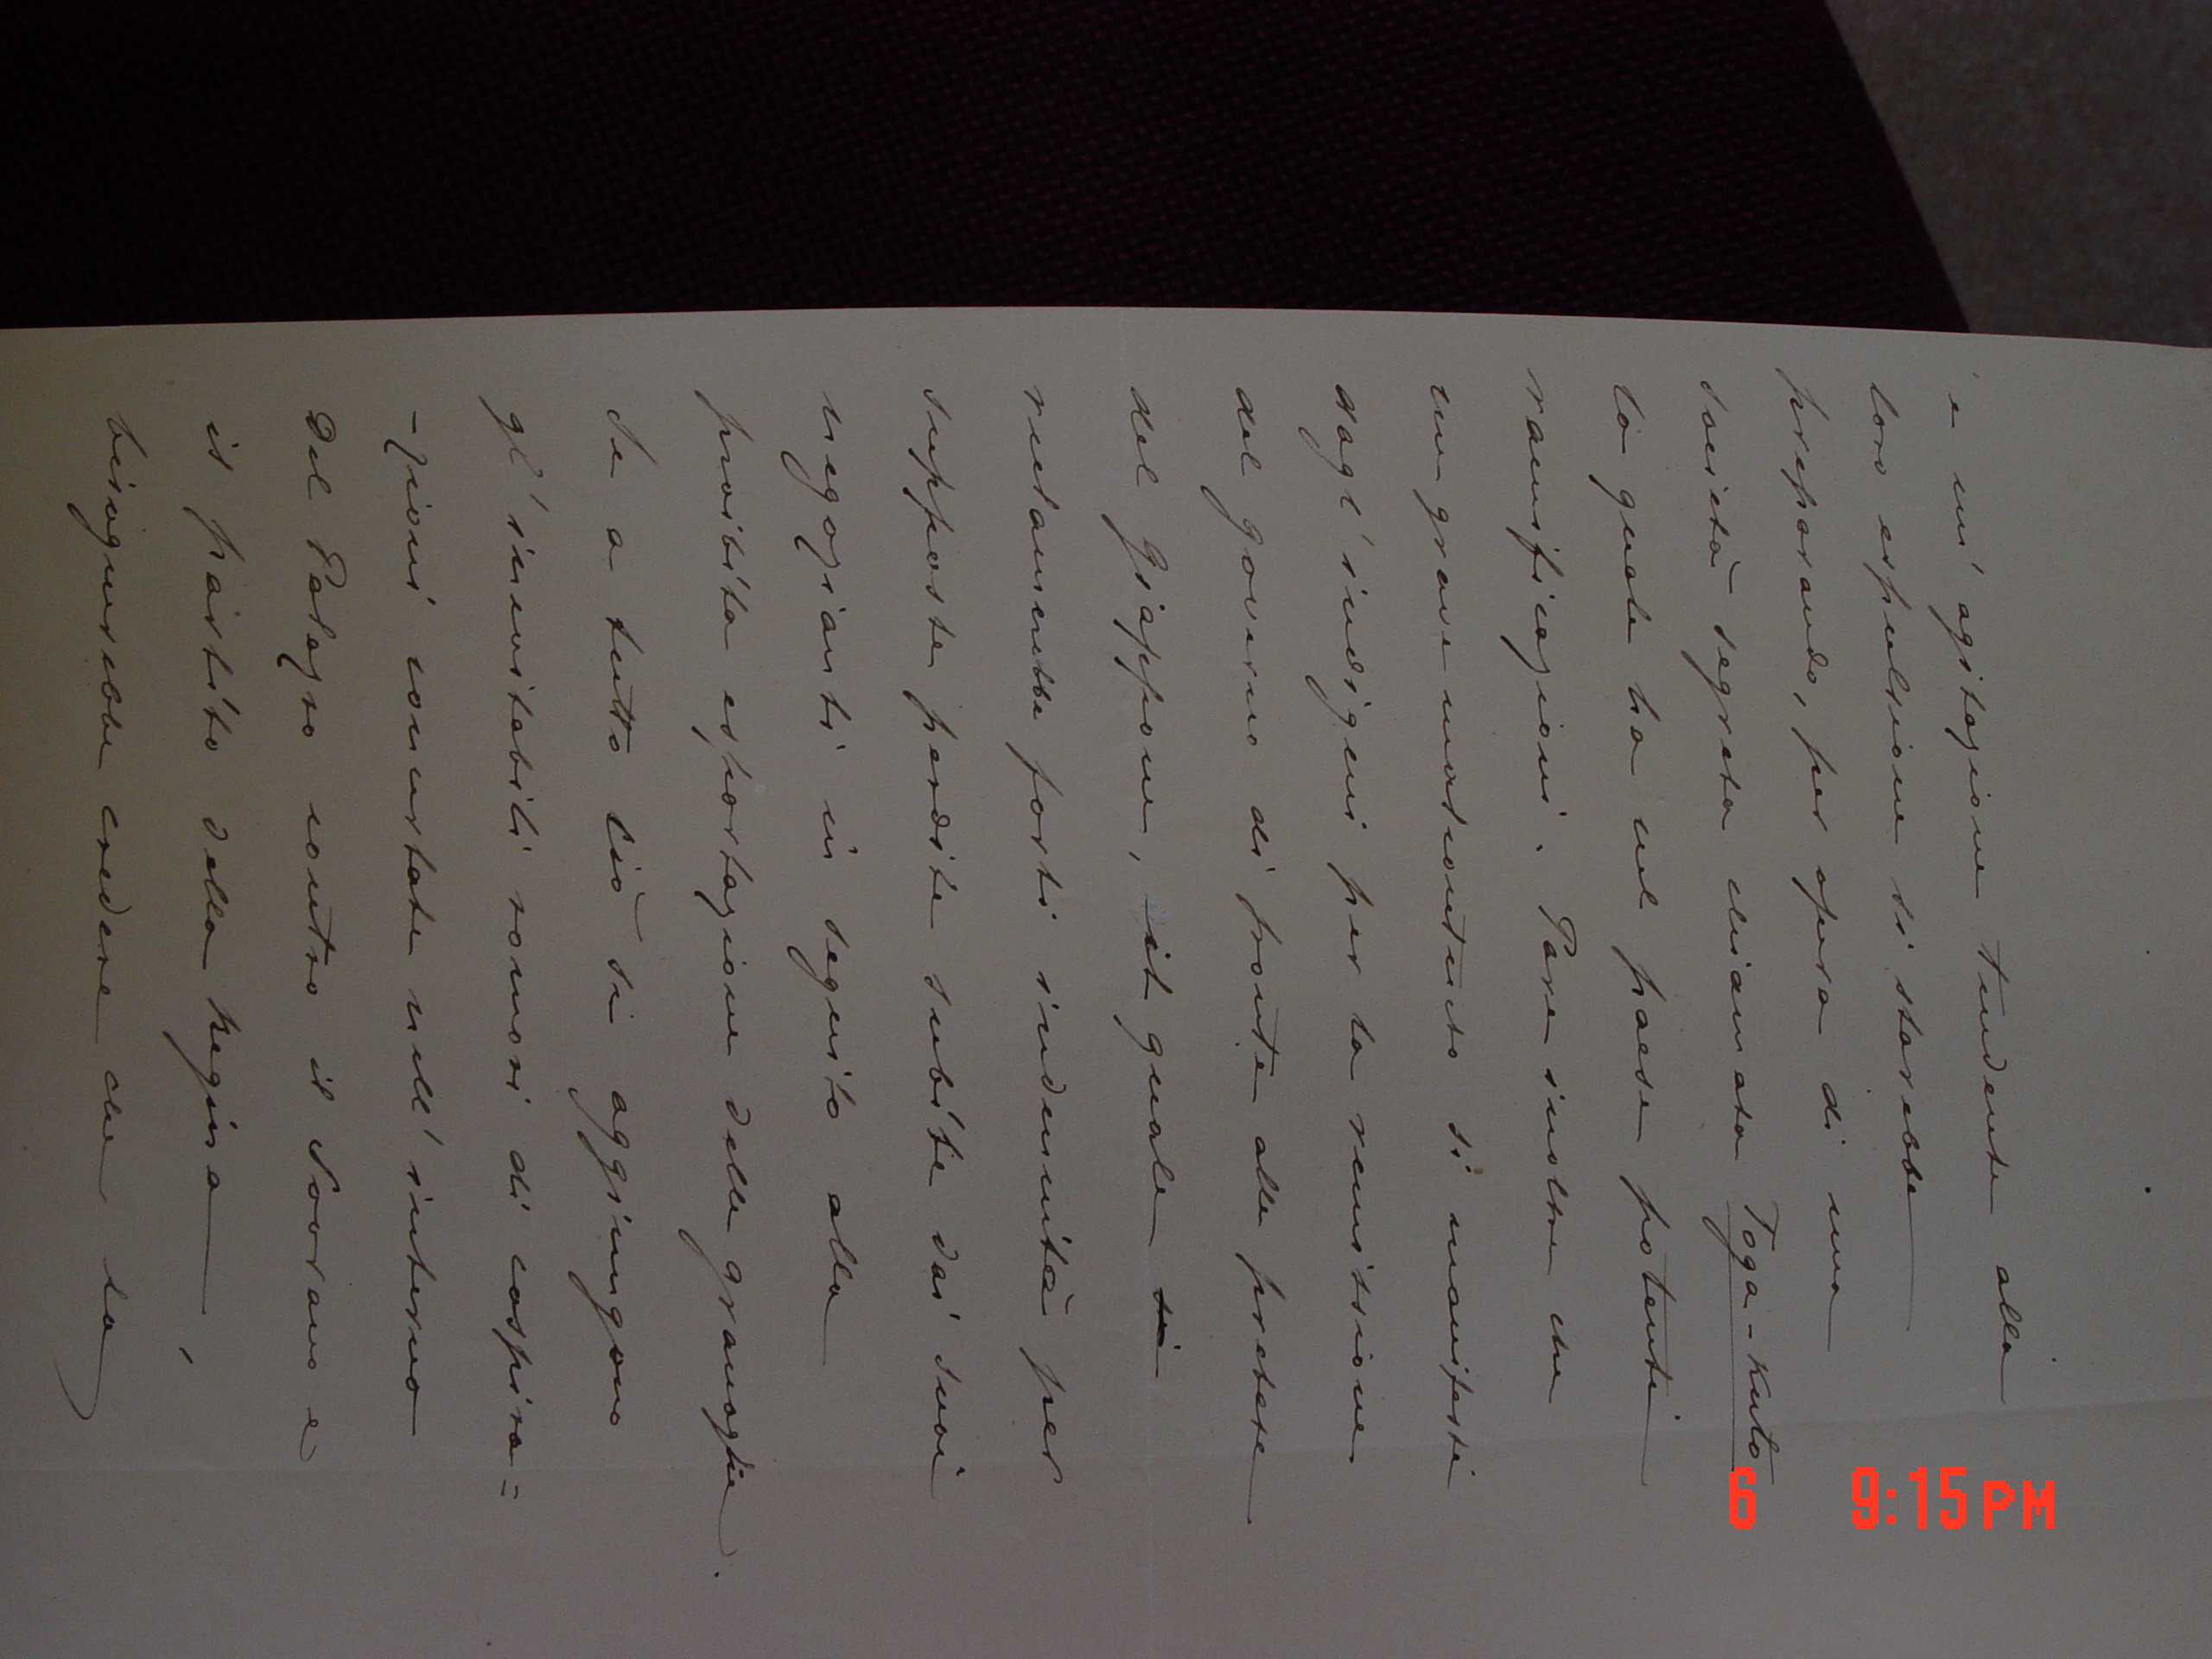 e un' agitazione tendente alla
loro espulsione si starebbe
preparando, per opera di una
società segreta chiamata Toga-Kuto
la quale ha nel paese potenti
ramificazioni. Pare inoltre che
un grave malcontento si manifesti
dagl'indigeni per la remissione
del governo di fronte alle pretese
del Giappone, il quale si
reclamerebbe forti indennità per
supposte perdite subite dai suoi
negozianti in seguito alla
proibita esportazione delle granaglie.
Se a tutto ciò si aggiungono
gl'inevitabili rumori di cospira=
-zioni concertate nell'interno
del Palazzo contro il Sovrano e
il partito della Regina,
bisognerebbe credere che la
6 9:15PM